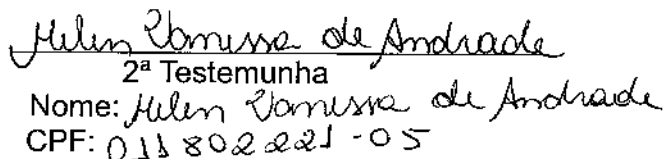 Helen Vanessa de Andrade
2ª Testemunha
Nome: Helen Vanessa de Andrade
CPF: 011802221-05